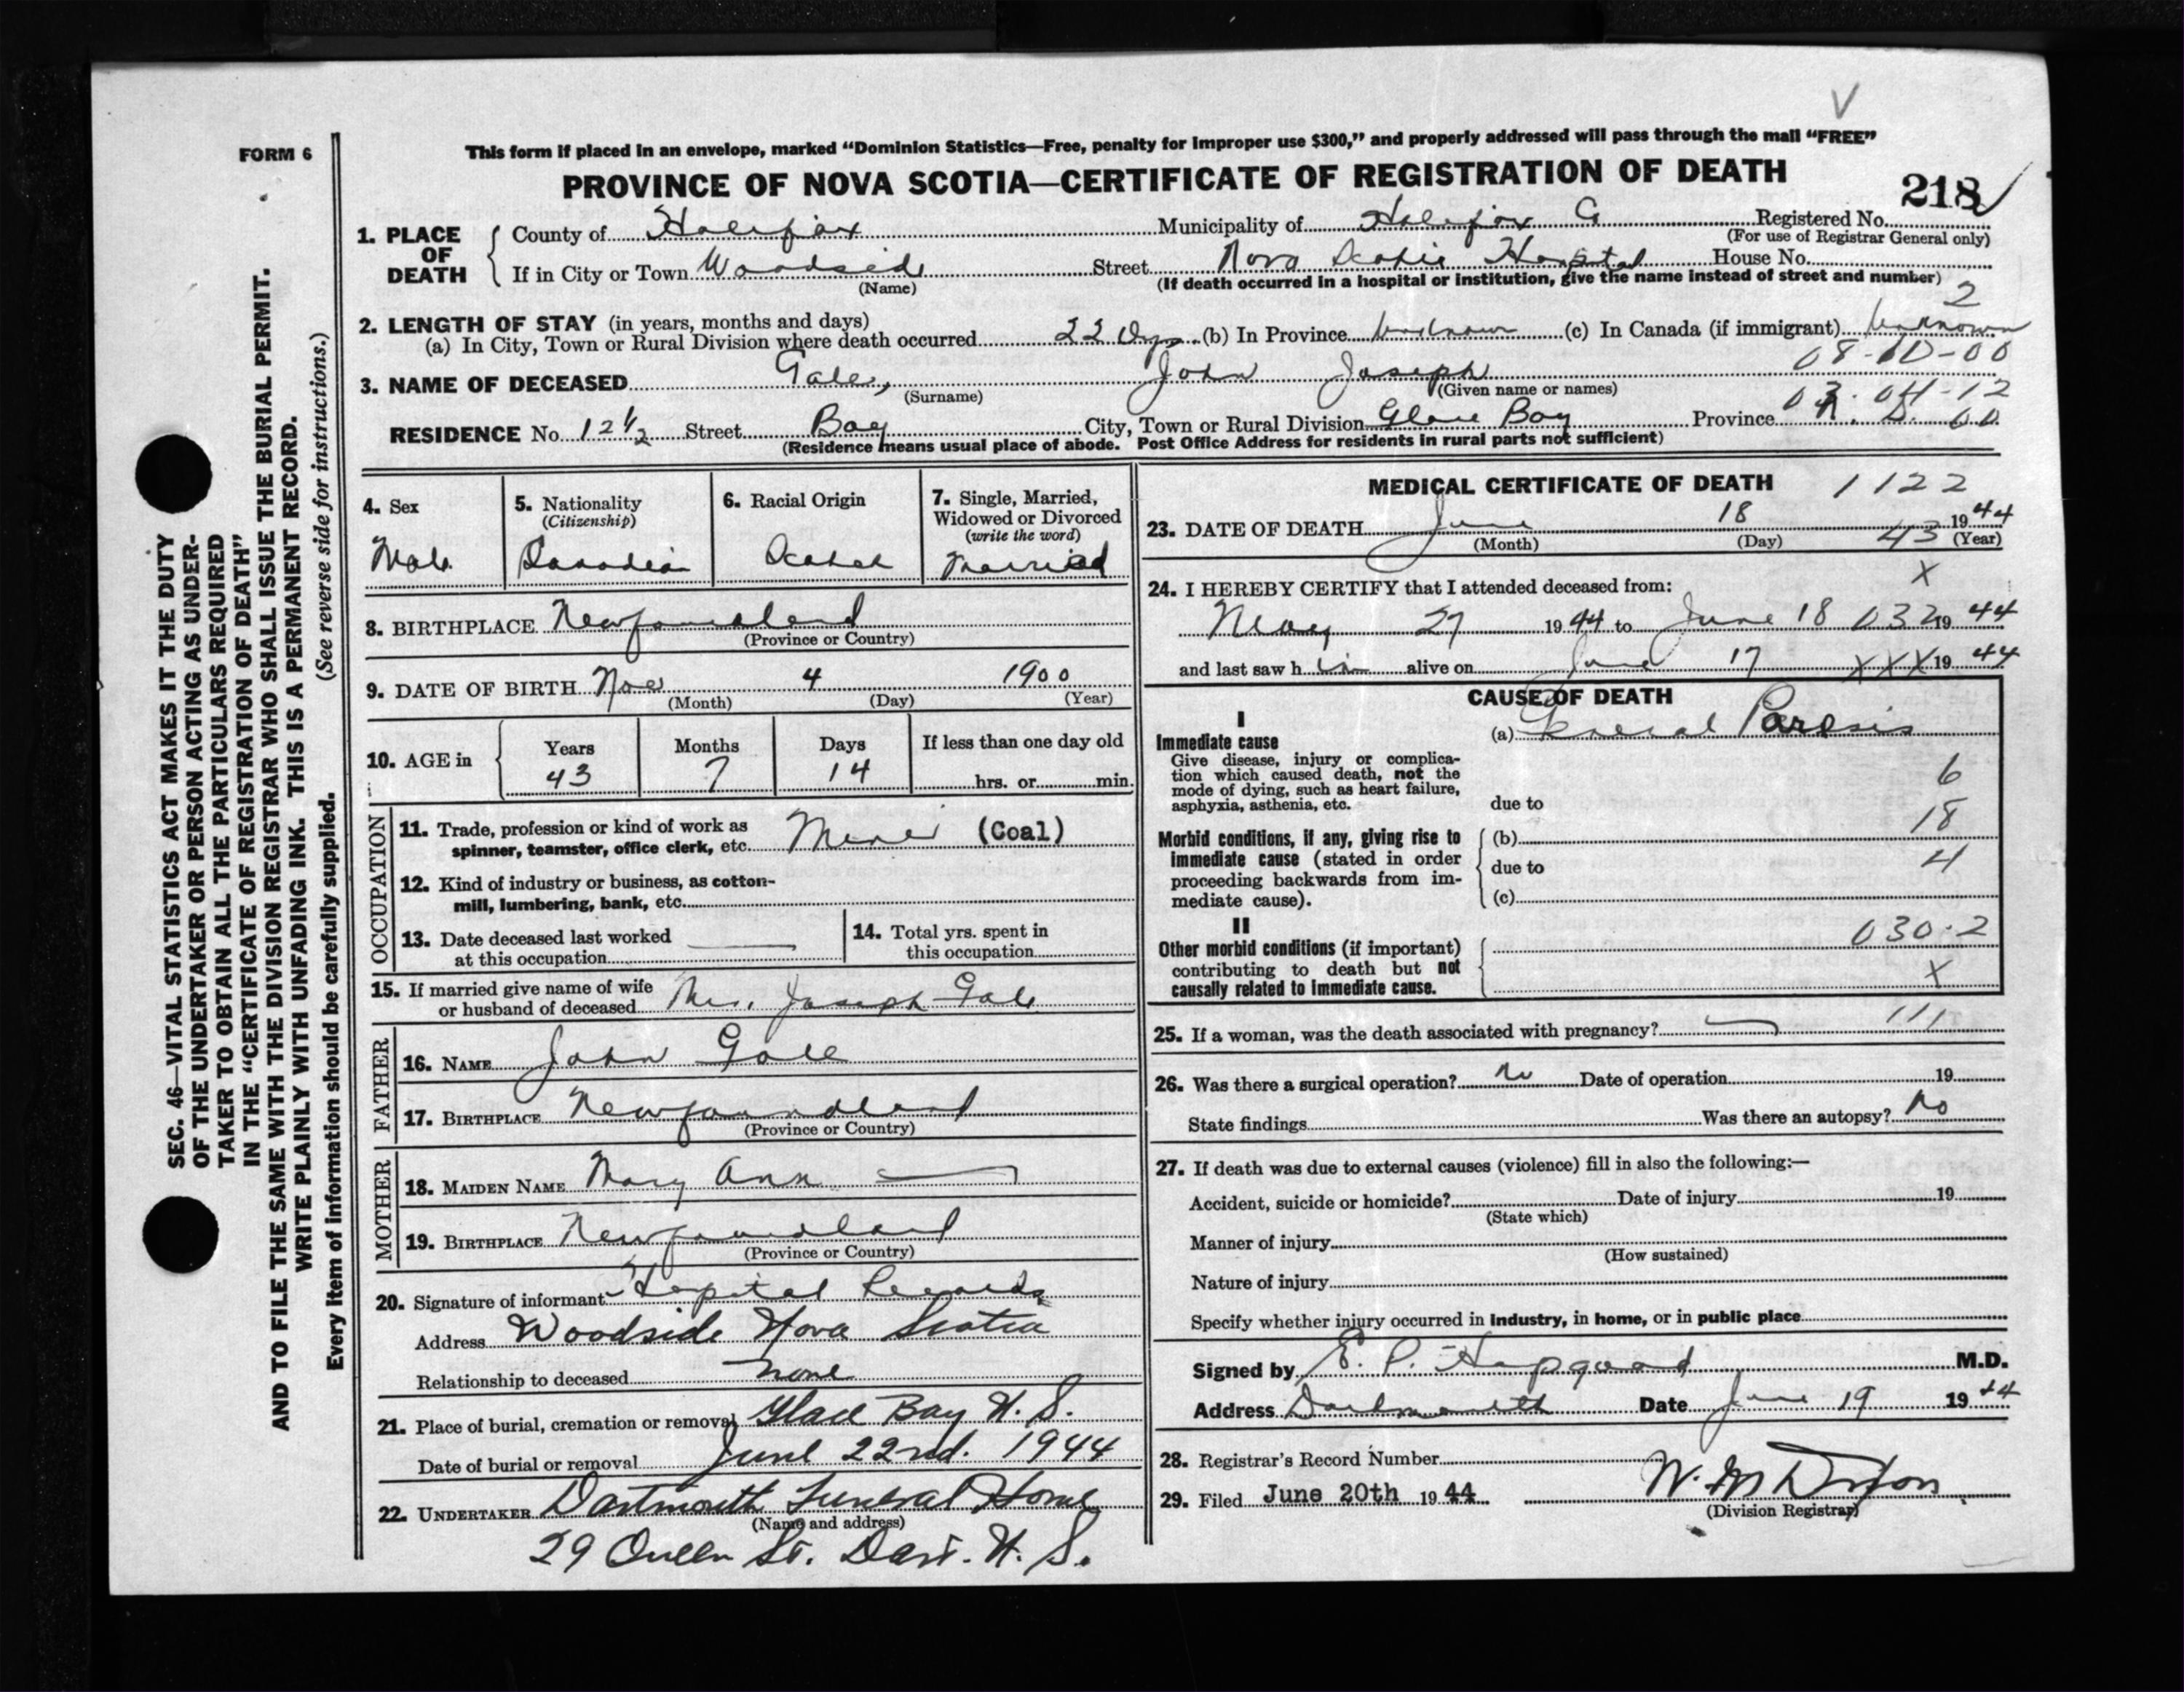 V
FORM 6
This form if placed in an envelope, marked “Dominion Statistics—Free, penalty for improper use $300,” and properly addressed will pass through the mail “FREE”
PROVINCE OF NOVA SCOTIA—CERTIFICATE OF REGISTRATION OF DEATH
218
1. PLACE OF DEATH { County of Halifax Municipality of Halifax Co Registered No.
(For use of Registrar General only)
If in City or Town Woodside Street Nova Scotia Hospital House No.
(Name) (If death occurred in a hospital or institution, give the name instead of street and number)
2
2. LENGTH OF STAY (in years, months and days)
(a) In City, Town or Rural Division where death occurred 22 Dys. (b) In Province Unknown (c) In Canada (if immigrant) Unknown
08-10-00
3. NAME OF DECEASED Gale, John Joseph
(Surname) (Given name or names)
03-04-12
RESIDENCE No. 12 1/2 Street Bay City, Town or Rural Division Glace Bay Province N. S. 00
(Residence means usual place of abode. Post Office Address for residents in rural parts not sufficient)
4. Sex 5. Nationality 6. Racial Origin 7. Single, Married,
(Citizenship) Widowed or Divorced
(write the word)
Male Canadian Scotch Married
8. BIRTHPLACE Newfoundland
(Province or Country)
9. DATE OF BIRTH Nov 4 1900
(Month) (Day) (Year)
10. AGE in { Years Months Days If less than one day old
43 7 14 hrs. or min.
OCCUPATION
11. Trade, profession or kind of work as
spinner, teamster, office clerk, etc. Miner (Coal)
12. Kind of industry or business, as cotton-
mill, lumbering, bank, etc.
13. Date deceased last worked
at this occupation
14. Total yrs. spent in
this occupation
15. If married give name of wife
or husband of deceased Mrs. Joseph Gale
FATHER
16. NAME John Gale
17. BIRTHPLACE Newfoundland
(Province or Country)
MOTHER
18. MAIDEN NAME Mary Ann —
19. BIRTHPLACE Newfoundland
(Province or Country)
20. Signature of informant Hospital Records
Address Woodside Nova Scotia
Relationship to deceased none
21. Place of burial, cremation or removal Glace Bay N. S.
Date of burial or removal June 22nd. 1944
22. UNDERTAKER Dartmouth Funeral Home
(Name and address)
29 Queen St. Dart. N. S.
MEDICAL CERTIFICATE OF DEATH 1122
23. DATE OF DEATH June 18 1944
(Month) (Day) 43 (Year)
24. I HEREBY CERTIFY that I attended deceased from: X
May 27 1944 to June 18 032 1944
and last saw h im alive on June 17 XXX 1944
CAUSE OF DEATH
I
Immediate cause (a) General Paresis
Give disease, injury or complica-
tion which caused death, not the
mode of dying, such as heart failure,
asphyxia, asthenia, etc. due to 6
18
Morbid conditions, if any, giving rise to (b)
immediate cause (stated in order due to 4
proceeding backwards from im-
mediate cause). (c)
II
Other morbid conditions (if important) 030.2
contributing to death but not X
causally related to immediate cause.
25. If a woman, was the death associated with pregnancy? — 111
26. Was there a surgical operation? No Date of operation 19
State findings Was there an autopsy? No
27. If death was due to external causes (violence) fill in also the following:—
Accident, suicide or homicide? Date of injury 19
(State which)
Manner of injury
(How sustained)
Nature of injury
Specify whether injury occurred in industry, in home, or in public place
Signed by E. P. Hapgood M.D.
Address Dartmouth Date June 19 1944
28. Registrar's Record Number
29. Filed June 20th 1944
(Division Registrar)
SEC. 46—VITAL STATISTICS ACT MAKES IT THE DUTY
OF THE UNDERTAKER OR PERSON ACTING AS UNDER-
TAKER TO OBTAIN ALL THE PARTICULARS REQUIRED
IN THE “CERTIFICATE OF REGISTRATION OF DEATH”
AND TO FILE THE SAME WITH THE DIVISION REGISTRAR WHO SHALL ISSUE THE BURIAL PERMIT.
WRITE PLAINLY WITH UNFADING INK. THIS IS A PERMANENT RECORD.
Every item of information should be carefully supplied. (See reverse side for instructions.)